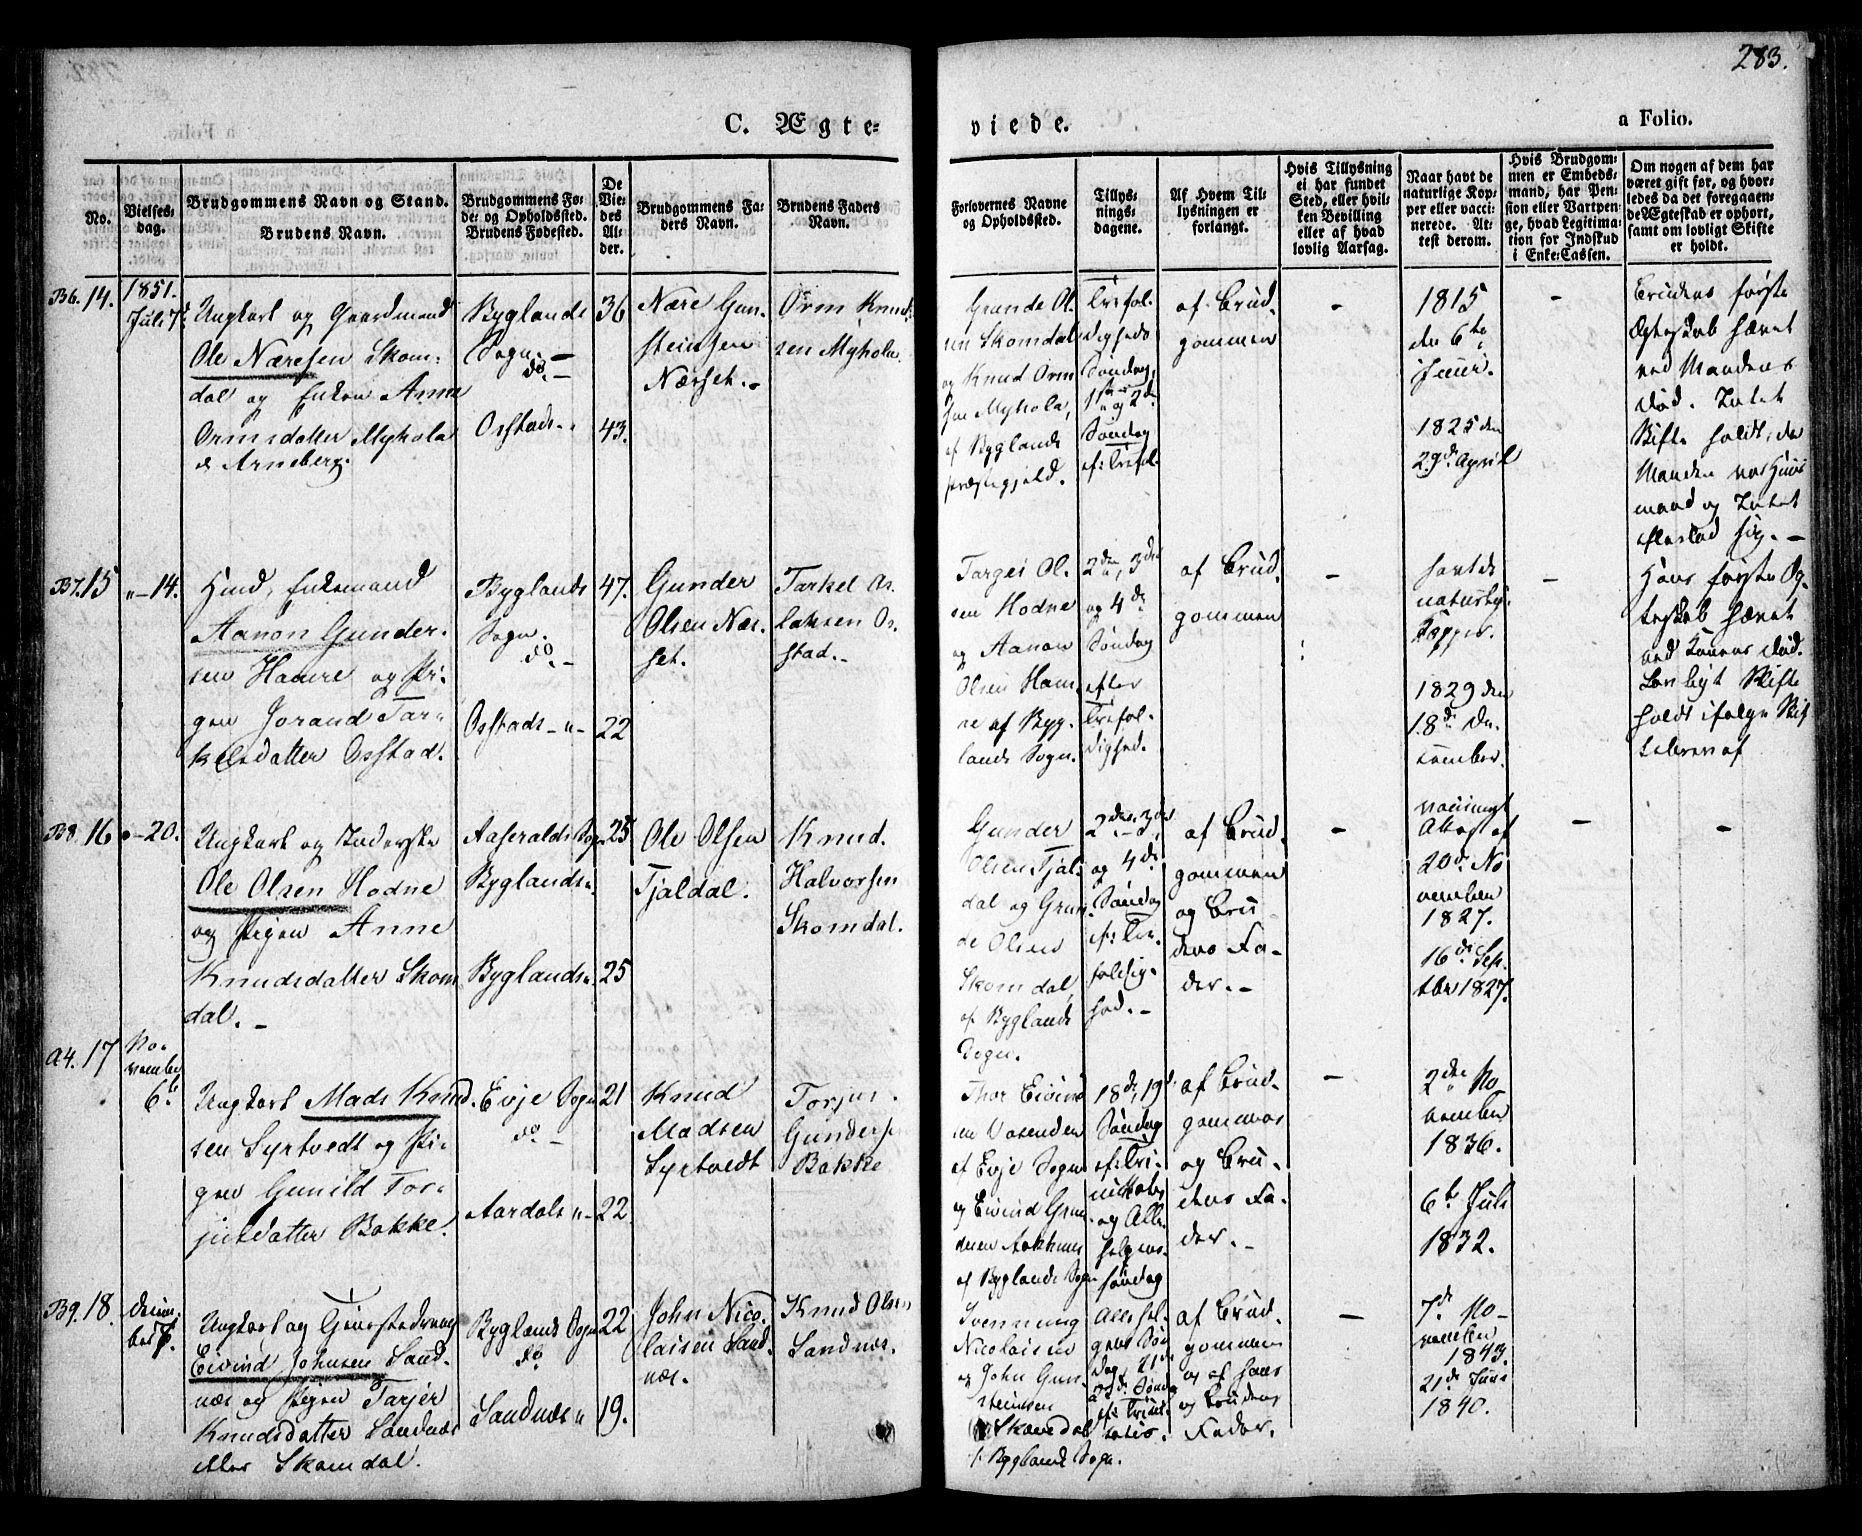 283.
C. Ægte-
viede.
a Folio.
No.
Vielses-
dag.
Brudgommens Navn og Stand.
Brudens Navn.
Brudgommens Fø-
de- og Opholdssted.
Brudens Fødested.
De
Vie-
des
Al-
der.
Brudgommens Fa-
ders Navn.
Brudens Faders
Navn.
Forlovernes Navne
og Opholdssted.
Tillys-
nings-
dagene.
Af Hvem Til-
lysningen er
forlangt.
Hvis Tillysning
ei har fundet
Sted, eller hvil-
ken Bevilling
eller af hvad
lovlig Aarsag.
Naar havt de
naturlige Kop-
per eller vacci-
nerede. At-
test derom.
Hvis Brudgom-
men er Embeds-
mand, har Pen-
sion eller Vartpen-
ge, hvad Legitima-
tion for Indskud
i Enke-Cassen.
Om nogen af dem har
været gift før, og hvor-
ledes da det foregaaen-
de Ægteskab er ophørt,
samt om lovligt Skifte
er holdt.
B6. 14.
1851.
Juli 7.
Ungkarl og Gaardmand
Ole Næresen Skom-
dal og Enken Anne
Ormsdatter Myhola
Arneberg.
Byglands
Sogn. -
do. -
Osstads -
36
43.
Nære Gun-
steinsen
Nærset. -
Orm Knud-
sen Myhola.
Grunde Ol-
sen Skomdal
og Knud Orm
sen Myhola,
af Byglands
præstegjeld.
Trefol-
digheds
Søndag,
1ste og 2de
Søndag
ef: Trefol.
af Brud-
gommen
-
1815
den 6te
Juni.
1825 den
29de April
-
Brudens første
Ægteskab hævet
ved Mandens
Død. Intet
Skifte holdt, da
Manden var Huus
mand og Intet
efterlod sig. -
B7. 15
"-14.
Enkemand
Aanon Gunder-
sen Hamre og Pi-
gen Jorand Tar-
kelsdatter Osstad.
Byglands
Sogn.
do. -
Osstads - " -
47.
22
Gunder
Olsen Nær-
set.
Tarkel As-
laksen Os-
stad. -
Targei Ol-
sen Hodne
og Aanon
Olsen Ham-
re af Byg-
lands Sogn.
2den, 3die
og 4de
Søndag
efter
Trefol-
dighed.
af Brud-
gommen
-
havt de
naturlige
Kopper.
1829 den
18de De-
cember.
-
Hans første Æg-
teskab hævet
ved Konens Død.
Lovligt Skifte
holdt ifølge Skif-
tebrev af
B8. 16
"-20.
Ungkarl og Inderste
Ole Olsen Hodne
og Pigen Anne
Knudsdatter Skom
dal. -
Aaseralds Sogn
Byglands ".
Byglands ".
25
25
Ole Olsen
Tjaldal.
Knud
Halvorsen
Skomdal.
Gunder
Olsen Tjal-
dal og Grun-
de Olsen
Skomdal,
af Byglands
Sogn.
2den, 3die
og 4de
Søndag
ef: Tre-
foldig-
hed. -
af Brud-
gommen
og Bru-
dens Fa-
der. -
-
vaccineret
Attest af
20de No
vember
1827.
16de Sep-
tbr 1827.
-
-
A4. 17
No-
vember
6te
Ungkarl Mads Knud-
sen Syrtvedt og Pi-
gen Gunild Tor-
jusdatter Bakke.
Evje Sogn
do. -
Aardals " -
21
22.
Knud
Madsen
Syrtvedt
Torjus
Gunders
Bakke
Thor Eivind
sen Vasenden
af Evje Sogn
og Eivind Gun
dersen
af Byglands Sogn
18de, 19de
Søndag
ef: Tri-
nitatis
og Alle-
helgens-
søndag
af Brud-
gommens
og Bru-
dens Fa-
der. -
-
2den No-
vember
1836.
6te Juli
1832.
B9. 18.
Decem-
ber 7.
Ungkarl og
Eivind Johnsen Sand-
næs og Pigen Tarjer
Knudsdatter Sandnæs
eller Skomdal.
Byglands Sogn
do
Sandnæs "
22
19.
John Nico-
laisen Sand-
næs.
Knud Olsen
Sandnæs.
Svennung
Nicolaisen
og John Gun-
steinsen
Skomdal
i Byglands Sogn.
Allehel-
gens Søn
dag, 21de
22de Søndag
ef: Trini-
tatis.
af Brud-
gommen
og af hans
og Brudens
Fader.
-
7de No-
vember
1843.
21de Juni
1840.